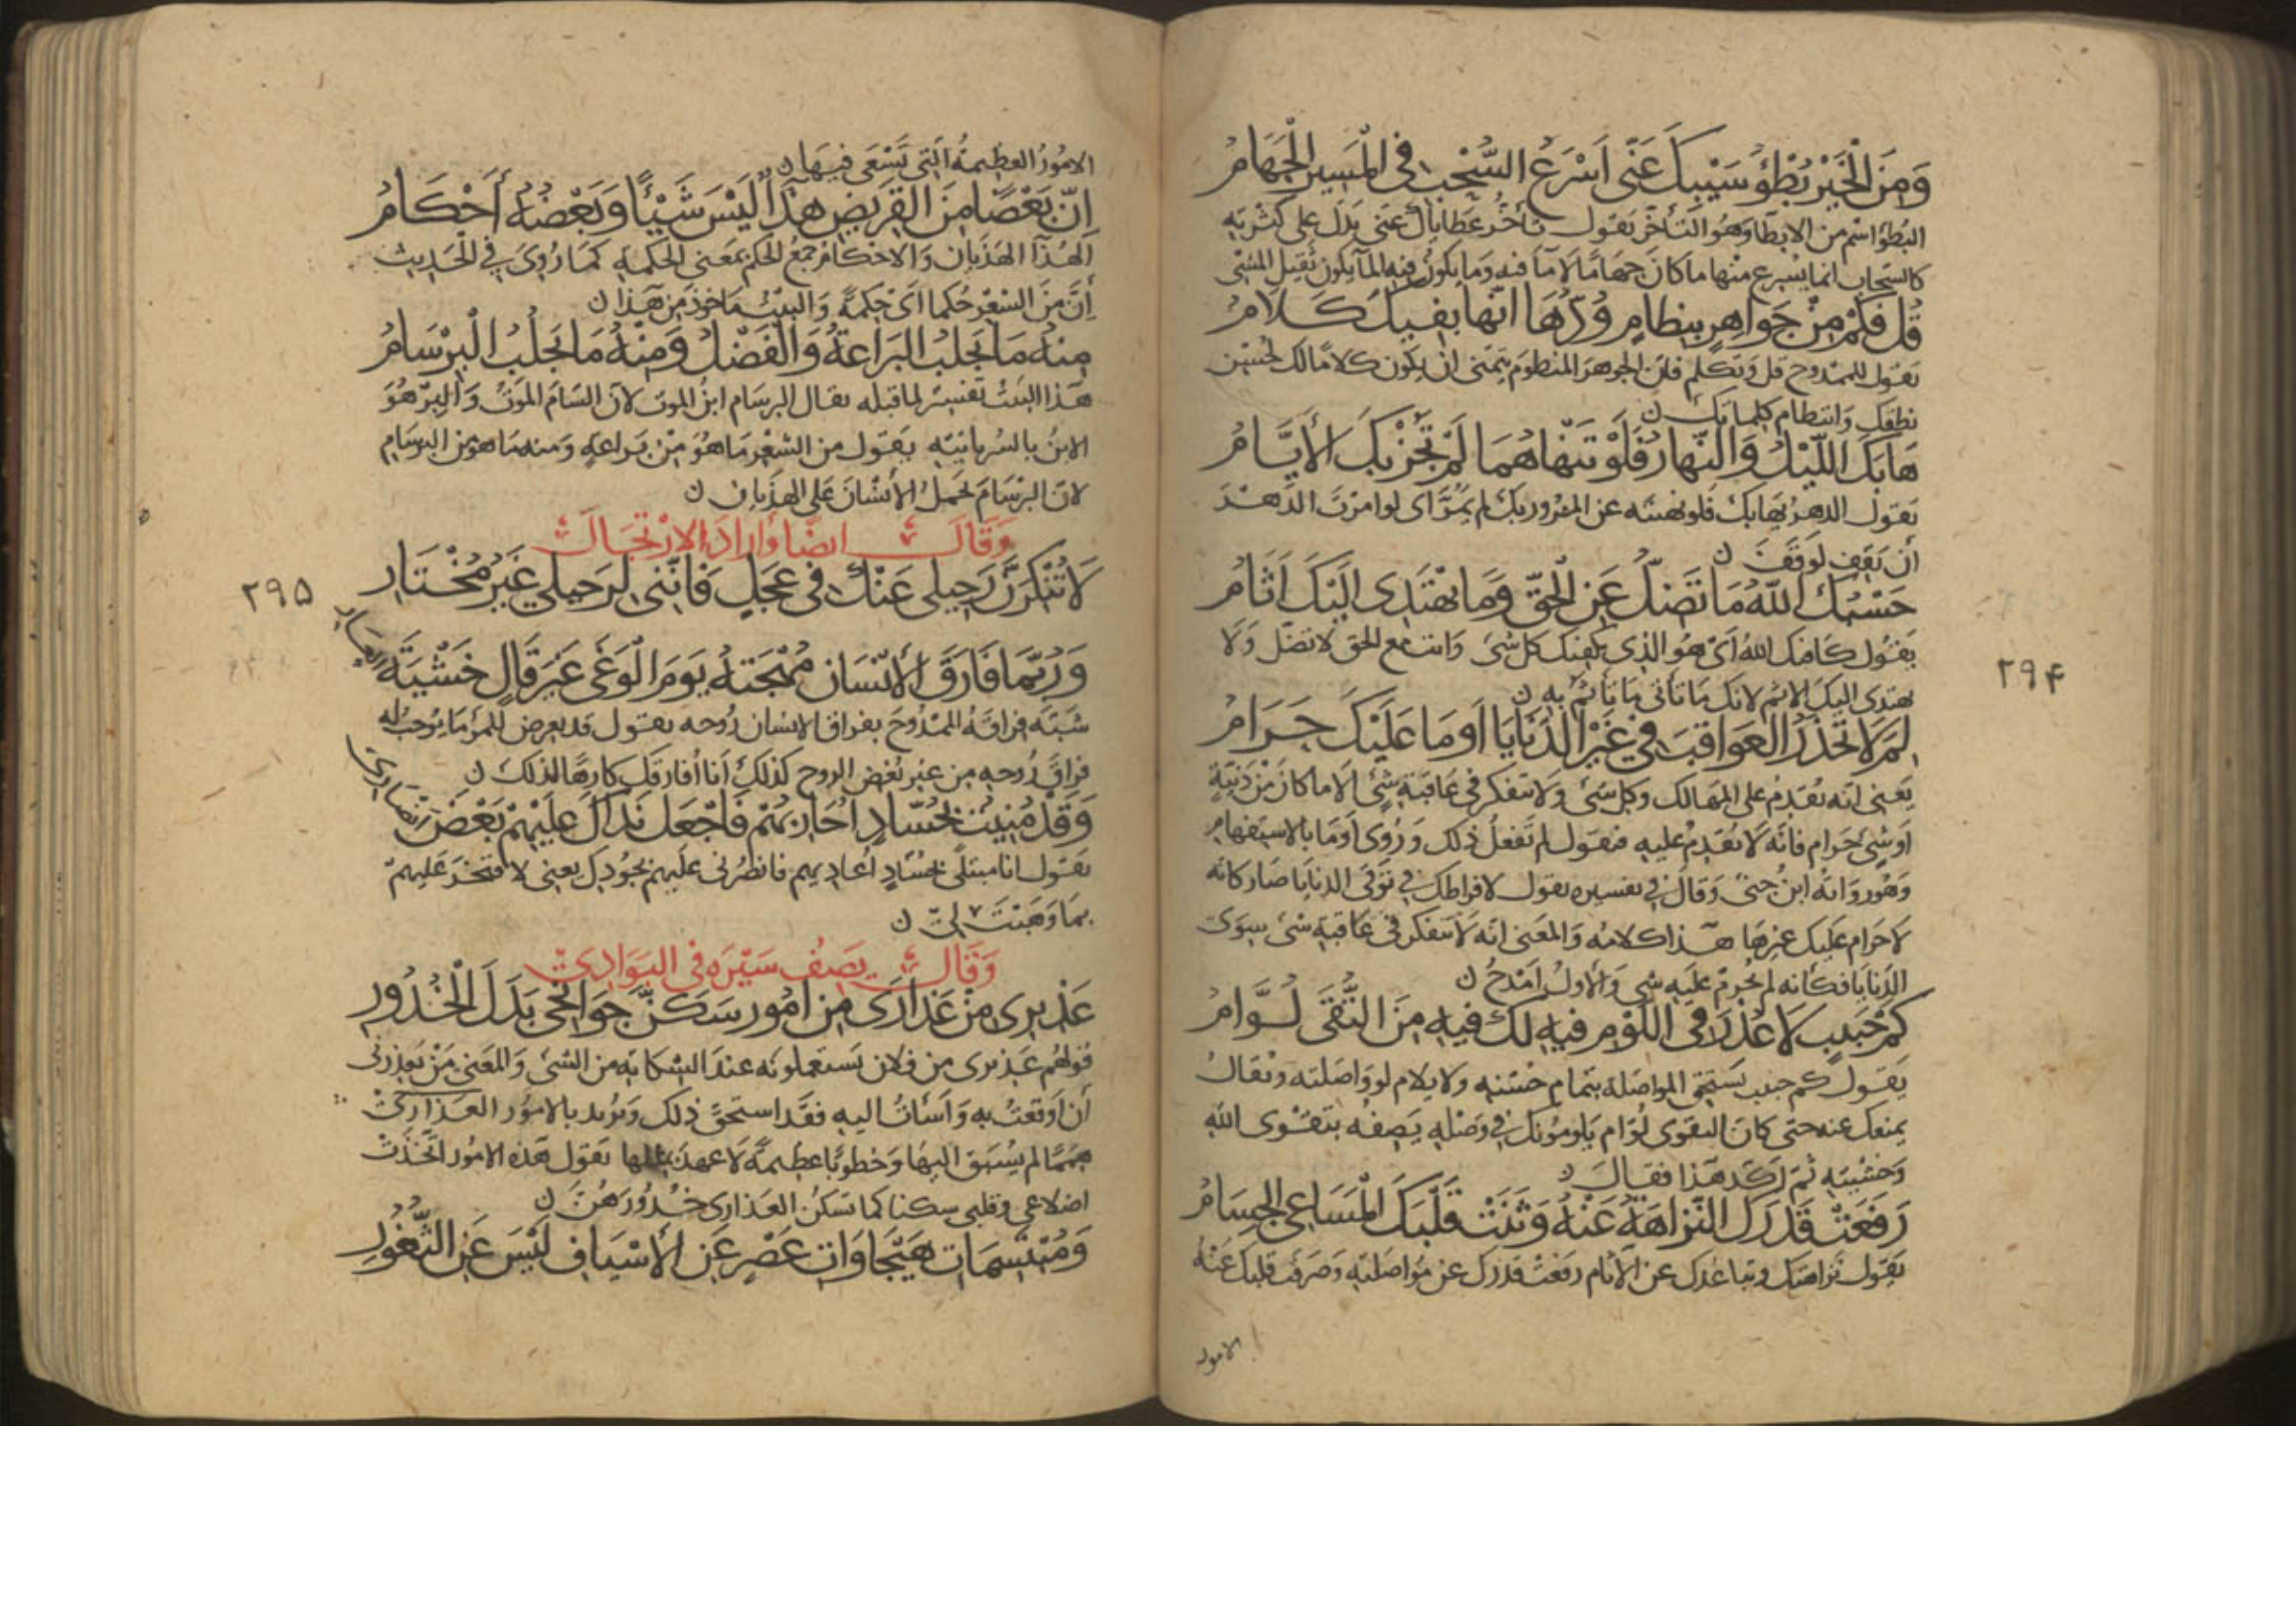 وَمِنَ الْخَيْرِ بُطْؤُ سَيْبِكَ عَنّى اَسْرَعُ السُّحْبِ فى الْمَسِيرِ الْجَهَامُ
البُطؤُ اسْم من الابطآ وَهُوَ التأخّر يَقول تأخُّر عَطاياك عَنى يَدُل على كثرته
كالسَّحاب انما يُسْرع منها ما كانَ جهَامًا لا مآ فيه وَما يكون فيه المآ يكون ثقيل المشى
قُلْ فَكَمْ مِنْ جَوَاهِرٍ بِنِظامٍ وُدّهَا انّها بِفِيكَ كَلَامُ
يَقول للممْدوح قل وَتكلم فان الجوهر المنظوم يتمنى ان يكون كلامًا لك لحُسْن
نطقك وَانتظام كلماتك ن
هَابَكَ اللّيْلُ وَالنّهارُ فَلَوْ تَنْهاهُمَا لَمْ تَجُزْ بِكَ الأَيَّامُ
يَقول الدهرُ يهَابك فلو نهيته عن المرُور بك لم يمُرّ اى لو امرْتَ الدّهْرَ
أنْ يَقِفَ لَوَقَفَ ن
حَسْبُكَ اللّهُ مَا تَضِلّ عَنِ الْحَقّ وَمَا يَهْتَدِى اِلَيْكَ اَثَامُ
يَقُول كافيك اللهُ أى هُوَ الذى يكفيك كل شىء وَانت مع الحق لا تضل وَلا
يهتدى اليكَ الاثم لانك مَا تأتى مَا يَأثم به ن
لِمَ لَا تَحْذَرُ العَوَاقِبَ فِي غَيْرِ الدَّنَايَا اَوَ مَا عَلَيْكَ حَرَامُ
يَعنى انّه يُقدِمُ على المهَالك وَكل شىء وَلا يتفكر فى عَاقبة شىء الا ما كان مِنْ دَنِيّةٍ
اَو شىءٍ حَرام فانّه لا يُقدِمُ عليه فيَقول لم تَفعلُ ذلك وَرُوى أوَمَا بالاستفهام
وَهُو روَايَهُ ابنُ جنى وَقالَ فِي تفسيره يقول لافراطك فِي تَوَقّى الدنايَا صَار كانه
لا حَرام عَليك غيرهَا هَذا كلامُه وَالمعَنى انّه لا يَتفكر فى عَاقبة شىء سِوَى
الدّنايَا فكأنه لم يُحرم عَليْه شىء وَالأول اَمْدحُ ن
كَمْ حَبِيبٍ لَا عُذْرَ فى اللّوْمِ فيهِ لكَ فِيهِ مِنَ التُّقَى لُوَّامُ
يَقُول كم حبيب يَستحق المواصَلة بتَمام حُسْنه ولا يلام لو وَاصَلته وَيقالُ
يمنعك عنه حتى كانَ التقوى لُوّام يَلومُونكَ فِي وَصْلِهِ يَصِفُه بتقوى اللهِ
وَخشيَتِهِ ثمّ اَكّدَ هَذا فقالَ ن
رَفَعَتْ قَدْرَكَ النّزاهَةُ عَنْهُ وَثَنَتْ قَلْبَكَ الْمَسَاعِي الْجِسَامُ
يَقول نزاهتك وتبَاعدك عن الآثام رَفعَتْ قدرَك عن مُوَاصَلته وَصَرفت قلبك عَنْه
الامور
۲۹۴
الامُورُ العظِيمةُ الّتى تَسْعَى فيهَا ن
اِنّ بَعْضًا مِنَ القَرِيضِ هُذَآ لَيْسَ شَيْئًا وَبَعْضُهُ أَحْكَامُ
الهُذآ الهَذيَان وَالاحْكامُ جَمْعُ الحكم بمَعنى الحكمةِ كمَا رُوِىَ فِي الْحَدِيث
أِنَّ مِنَ الشِعْرِ حُكما اَىْ حِكمَةً وَالبَيْتُ مَاخوذ مِنْ هَذا ن
مِنهُ مَا يَجْلبُ البَرَاعَةُ وَالفَضْلُ وَمِنْهُ مَا يَجْلبُ الْبِرْسَامُ
هَذا البَيْتُ تَفسِيرُ لما قبله يقال البرسَام ابنُ الموت لانّ السّام الموتُ وَالبِرّ هُوَ
الابنُ بالسُرْيانيّه يَقول من الشعْر مَا هُوَ مِنْ بَرَاعَةٍ وَمنه مَا هوَ من البرسَام
لانّ البِرْسَامَ يَحمل الأنسَانَ عَلى الهذيان ن
وَقَالَ ايضًا وَارادَ الارتحَالَ
لَا تُنْكِرَنَّ رَحِيلِى عَنْكَ فِى عَجَلٍ فَانّنى لِرَحيلى غَيْرُ مُخْتَارِ
۲۹۵
وَرُبّمَا فَارَقَ الأِنْسَانُ مُهْجَتَهُ يَوْمَ الْوَغَى غَيْرَ قَالٍ خَشْيَةَ
العَارِ
شَبّه فِراقَهُ الممْدُوحَ بفراق الانسان رُوحه يقول قد يعرض للمرء مَا يُوجبُ له
فراقَ رُوحِه من غير بُغض الروح كذلك أنا اُفارقك كارهًا لذلك ن
وَقَدْ مُنِيتُ بِحُسّادٍ اُحَارِبُهُمْ فَاجْعَلْ نَدَاكَ عَلَيْهِمْ بَعْضَ
اَنْصَارِى
يَقول انا مبتلًى بحُسّادٍ اُعَادِيهم فانصُرنى عليهم بجُودك يعنى لا فتخرَ عَليهمْ
بمَا وَهَبْتَ لِى ن
وَقَالَ يَصِفُ سَيْرَه فى البَوَادِى
عَذِيرِى مِنْ عَذَارَى مِن اُمُورٍ سَكَنّ جَوَانِحِى بَدَلَ الْخُدُورِ
قولهُم عَذيرى من فلان يَستعملونه عندَ الشكايه من الشىء وَالمعَنى مَنْ يعذرنى
أن أوقعتُ به وَأسَأتُ اليه فقد استحقّ ذلك وَيُريد بالامُور العَذارَى
لم يُسْبَق اليهَا وَخطوبًا عظيمةً لا عَهدَ بمثلها يَقول هَذه الامُور اتّخذَتْ
اضلاعى وقلبى سكنا كما تَسكنُ العَذارى خُدُورَهُنّ ن
وَمُبْتَسِمَاتِ هَيْجَاوَاتِ عَصْرٍ عَنِ الأَسْيَافِ لَيْسَ عَنِ الثّغُورِ